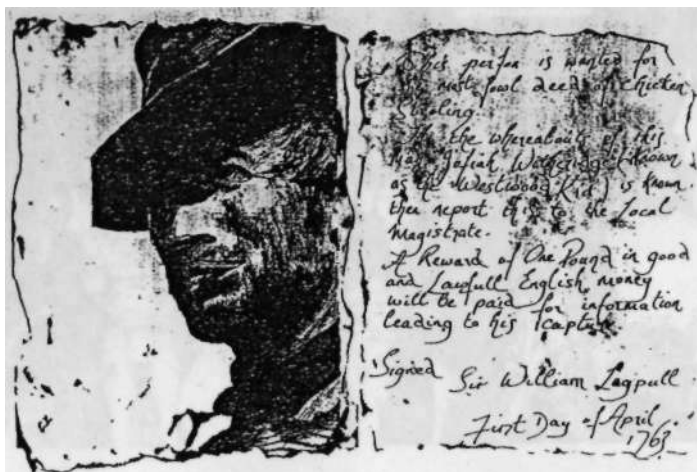 This perfon is wanted for
the most fowl deed of chicken
Stealing.
If the whereabouts of this
man Josiah Witheridge (known
as the Westwood Kid) is known
then report this to the Local
Magistrate.
A Reward of One Pound in good
and Lawfull English money
will be paid for information
leading to his capture
Signed Sir William Legpull
First Day of April
1763